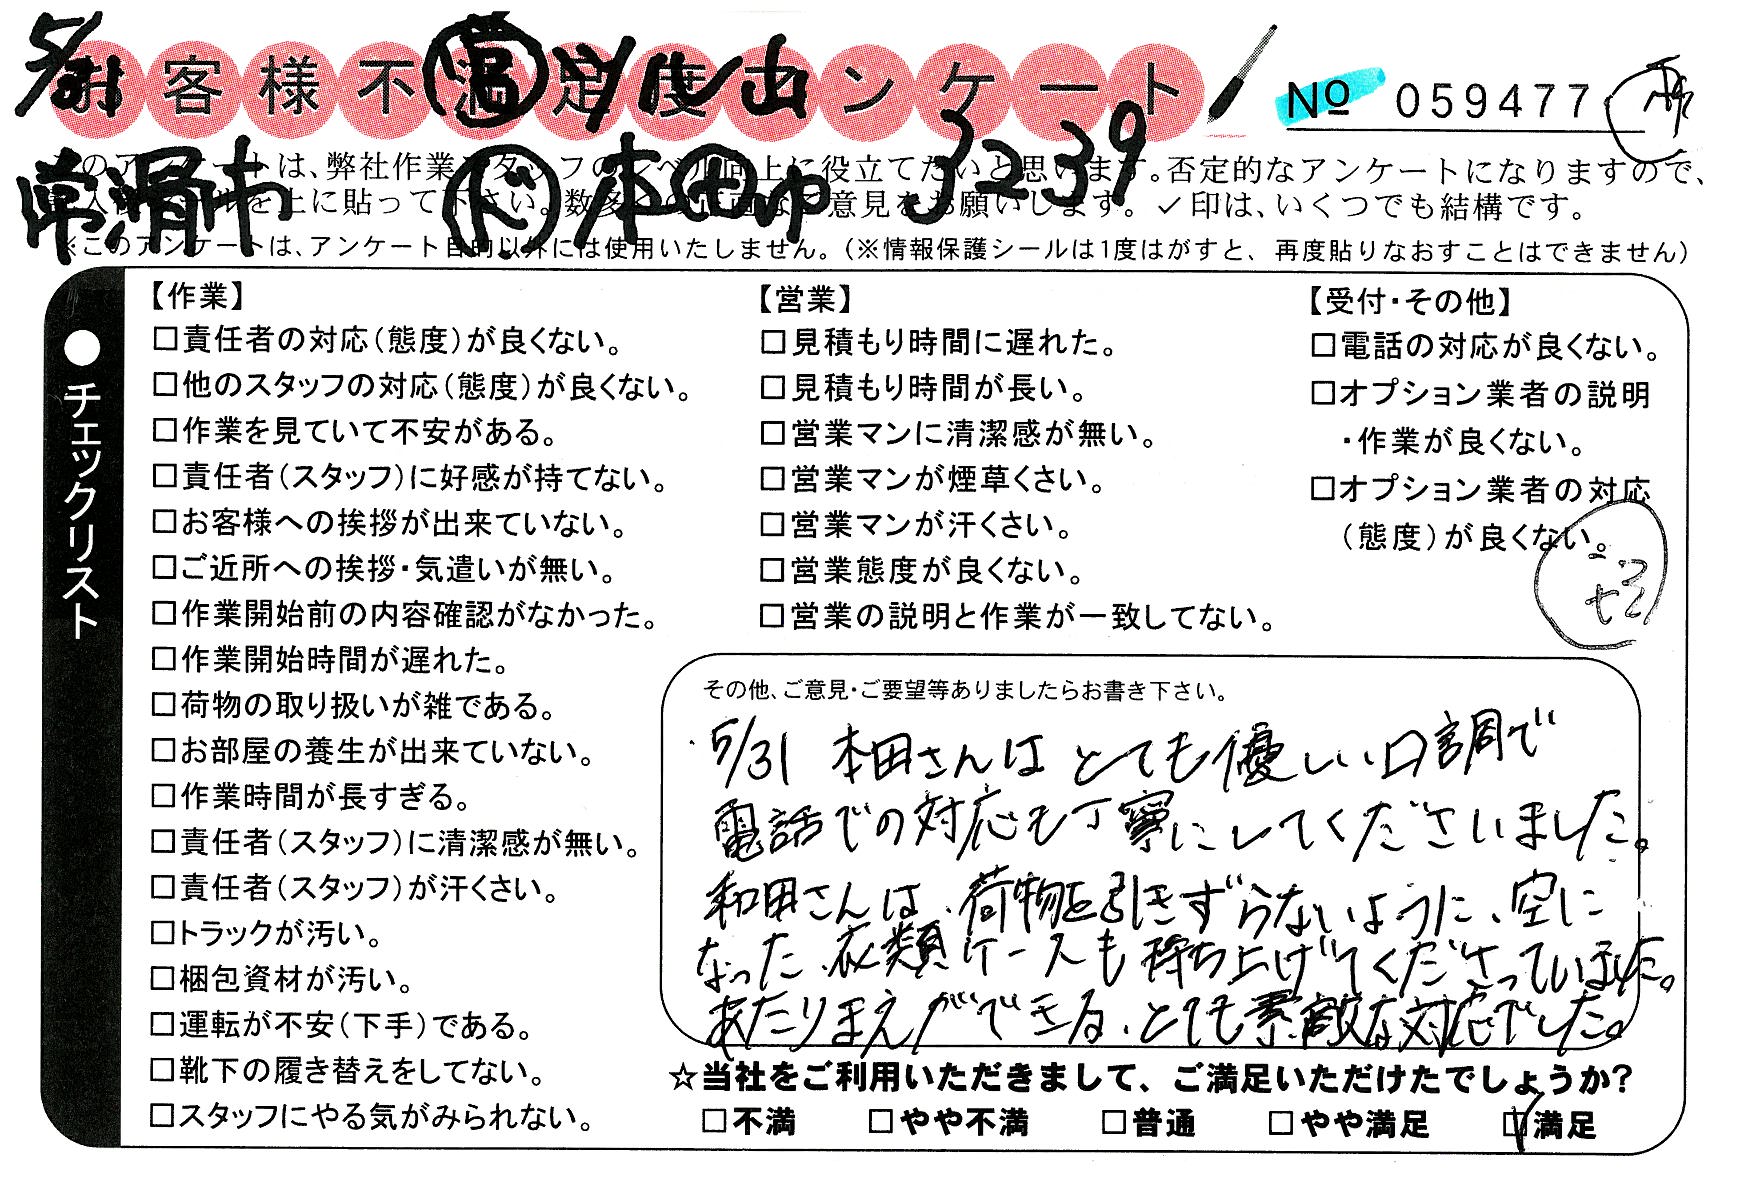 お客様不満足度アンケート
No 059477
常滑市 ド 本田 3239
このアンケートは、弊社作業スタッフのレベル向上に役立てたいと思います。否定的なアンケートになりますので、
に貼って下さい。数多くの正直なご意見をお願いします。✓印は、いくつでも結構です。
※このアンケートは、アンケート目的以外には使用いたしません。(※情報保護シールは1度はがすと、再度貼りなおすことはできません)
●チェックリスト
【作業】
□責任者の対応(態度)が良くない。
□他のスタッフの対応(態度)が良くない。
□作業を見ていて不安がある。
□責任者(スタッフ)に好感が持てない。
□お客様への挨拶が出来ていない。
□ご近所への挨拶・気遣いが無い。
□作業開始前の内容確認がなかった。
□作業開始時間が遅れた。
□荷物の取り扱いが雑である。
□お部屋の養生が出来ていない。
□作業時間が長すぎる。
□責任者(スタッフ)に清潔感が無い。
□責任者(スタッフ)が汗くさい。
□トラックが汚い。
□梱包資材が汚い。
□運転が不安(下手)である。
□靴下の履き替えをしてない。
□スタッフにやる気がみられない。
【営業】
□見積もり時間に遅れた。
□見積もり時間が長い。
□営業マンに清潔感が無い。
□営業マンが煙草くさい。
□営業マンが汗くさい。
□営業態度が良くない。
□営業の説明と作業が一致してない。
【受付・その他】
□電話の対応が良くない。
□オプション業者の説明
・作業が良くない。
□オプション業者の対応
(態度)が良くない。
その他、ご意見・ご要望等ありましたらお書き下さい。
5/31 本田さんは とても優しい口調で
電話での対応も丁寧にしてくださいました。
和田さんは、荷物を引きずらないように、空に
なった衣類ケースも持ち上げてくださっていました。
あたりまえができる、とても素敵な対応でした。
☆当社をご利用いただきまして、ご満足いただけたでしょうか?
□不満 □やや不満 □普通 □やや満足 ☑満足